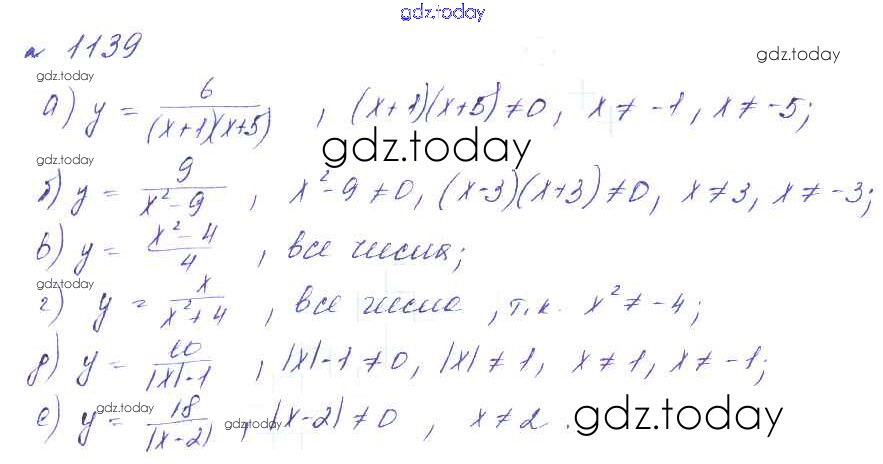 gdz.today
№ 1139
gdz.today
gdz.today
а) y = 6/((x+1)(x+5)), (x+1)(x+5) ≠ 0, x ≠ -1, x ≠ -5;
gdz.today
gdz.today
б) y = 9/(x²-9), x²-9 ≠ 0, (x-3)(x+3) ≠ 0, x ≠ 3, x ≠ -3;
в) y = (x²-4)/4, все числа;
gdz.today
г) y = x/(x²+4), все числа, т.к. x² ≠ -4;
д) y = 10/(|x|-1), |x|-1 ≠ 0, |x| ≠ 1, x ≠ 1, x ≠ -1;
gdz.today
gdz.today
gdz.today
е) y = 18/|x-2|, |x-2| ≠ 0, x ≠ 2.